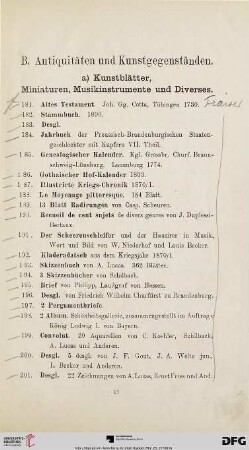 B. Antiquitäten und Kunstgegenständen.
a) Kunstblätter,
Miniaturen, Musikinstrumente und Diverses.
181. Altes Testament Joh. Gg. Cotta, Tübingen 1730.
182. Stammbuch. 1800.
183. Desgl.
184. Jahrbuch der Preussisch-Brandenburgischen Staaten-
geschichte mit Kupfern VII. Theil.
185. Genealogischer Kalender. Kgl. Grossbr. Churf. Braun-
schweig-Lüneburg. Lauenburg 1774.
186. Gothaischer Hof-Kalender 1803.
187. Illustrirte Kriegs-Chronik 1870/1.
188. Le Moyenage pittoresque. 184 Blatt.
189. 13 Blatt Radirungen von Casp. Scheuren.
191. Recueil de cent sujets de divers genres von J. Duplessi-
Bertaux.
194. Der Scheerenschleifer und der Hausirer in Musik,
Wort und Bild von W. Niederhof und Louis Becker.
192. Kladeradatsch aus dem Kriegsjahr 1870/1.
193. Skizzenbuch von A. Lucas. 363 Blätter.
194. 3 Skizzenbücher von Schilbach.
195. Brief von Philipp, Landgraf von Hessen.
196. Desgl. von Friedrich Wilhelm Churfürst zu Brandenburg.
197. 2 Pergamentbriefe.
198. 2 Album. Schönheitsgallerie, zusammengestellt im Auftrage
König Ludwig I. von Bayern.
199. Convolut. 20 Aquarellen von C. Koehler, Schilbach,
A. Lucas und Anderen.
200. Desgl. 5 desgl. von J. F. Gout, J. A. Welte jun.
L. Becker und Anderen.
201. Desgl. 22 Zeichnungen von A. Lucas, Ernst Fries und And.
UNIVERSITÄTS-
BIBLIOTHEK
HEIDELBERG
DFG